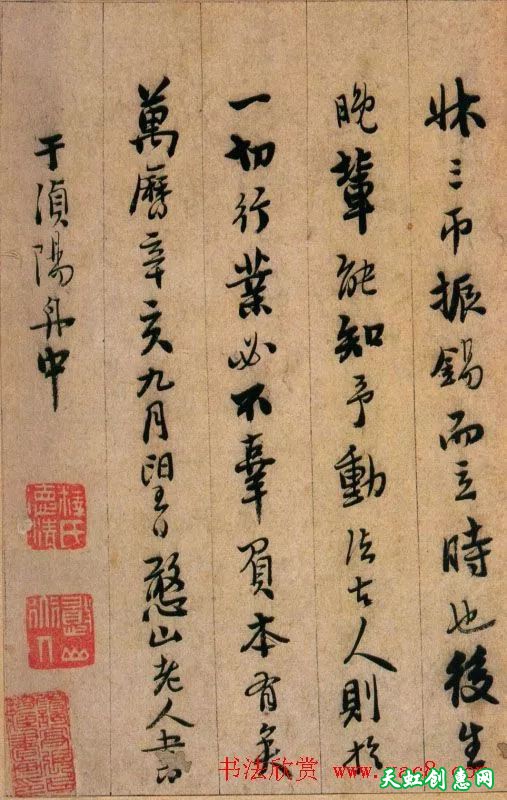 牀三帀振錫而立時也後生
晚輩能知予動法古人則於
一切行業必不辜負本有矣
萬曆辛亥九月朢日憨山老人書
于湞陽舟中
釋氏德清
书法欣赏
天虹创惠网